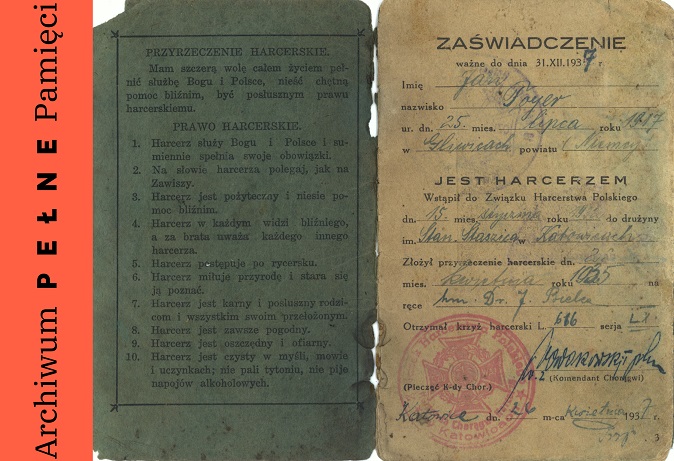 Archiwum PEŁNE Pamięci
PRZYRZECZENIE HARCERSKIE.
Mam szczerą wolę całem życiem peł-
nić służbę Bogu i Polsce, nieść chętną
pomoc bliźnim, być posłusznym prawu
harcerskiemu.
PRAWO HARCERSKIE.
1. Harcerz służy Bogu i Polsce i su-
miennie spełnia swoje obowiązki.
2. Na słowie harcerza polegaj, jak na
Zawiszy.
3. Harcerz jest pożyteczny i niesie po-
moc bliźnim.
4. Harcerz w każdym widzi bliźniego,
a za brata uważa każdego innego
harcerza.
5. Harcerz postępuje po rycersku.
6. Harcerz miłuje przyrodę i stara się
ją poznać.
7. Harcerz jest karny i posłuszny rodzi-
com i wszystkim swoim przełożonym.
8. Harcerz jest zawsze pogodny.
9. Harcerz jest oszczędny i ofiarny.
10. Harcerz jest czysty w myśli, mowie
i uczynkach; nie pali tytoniu, nie pije
napojów alkoholowych.
ZAŚWIADCZENIE
ważne do dnia 31.XII.1937 r.
Imię Jan
nazwisko Poyer
ur. dn. 25. mies. lipca roku 1917
w Gliwicach powiatu (Niemcy)
JEST HARCERZEM
Wstąpił do Związku Harcerstwa Polskiego
dn. 15 mies. stycznia roku do drużyny
im. Stan. Staszica w Katowicach
Złożył przyrzeczenie harcerskie dn.
mies. kwietnia roku 1935 na
ręce hm. Dr. J.
Otrzymał krzyż harcerski L. 686 serja
(Pieczęć K-dy Chor.) (Komendant Chorągwi)
Katowice dn. 26 m-ca kwietnia 1937 r.
3